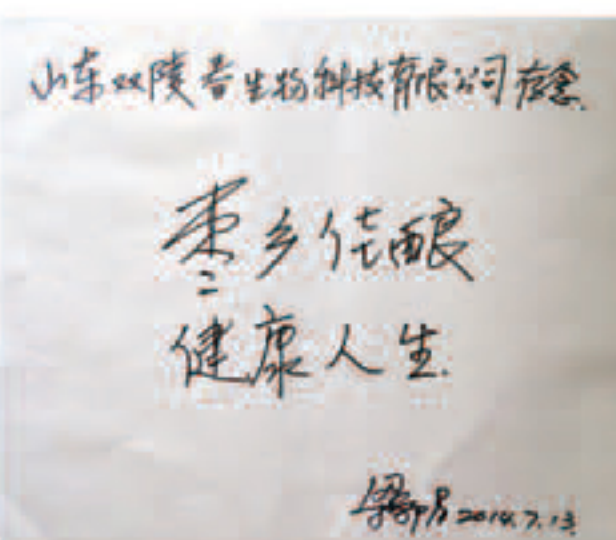 山东双陵春生物科技有限公司存念
枣乡佳酿
健康人生
梁邦昌 2014.7.13.